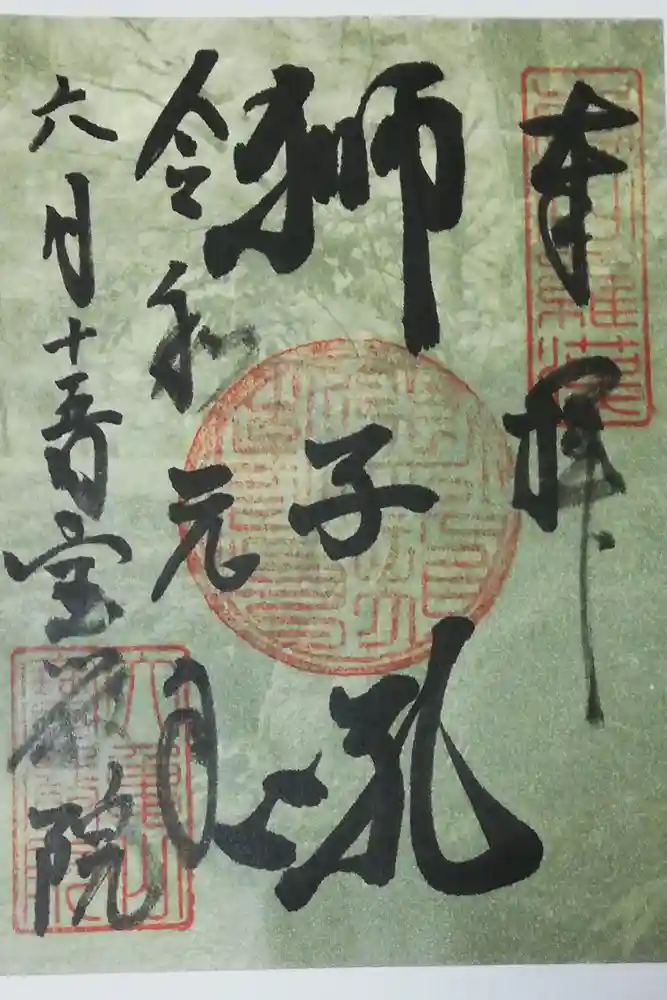 奉拝
獅子吼
令和元年
六月十五日
宝厳院